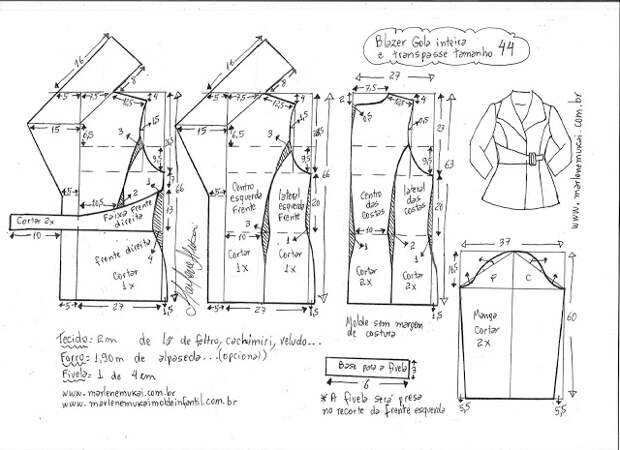 Blazer Gola inteira
e transpasse tamanho 44
27
7,5
2
4
1,5
15
23
9,5
63
20
1
2
Centro
das
costas
lateral
das
costas
Cortar
2x
Cortar
2x
10
27
1,5
Molde sem margem
de costura
16
8
5
7,5
12,5
4
1,5
15
6,5
3
9,5
66
1
5
10,5
2
13
Cortar 2x
Faixa frente
direita
10
frente direita
4
Cortar
1x
5
27
1,5
Marlene Mukai
16
8
5
7,5
12,5
4
15
15
6,5
3
9,5
66
5
Centro
esquerda
Frente
lateral
esquerda
Frente
20
2
10
1
Cortar
1x
Cortar
1x
5
27
1,5
www.marlenemukai.com.br
37
16,5
F
C
60
Manga
Cortar
2x
5,5
5,5
Tecido: 2m de lã de feltro, cachimiri, veludo...
Forro: 1,90m de alpaseda...(opcional)
Fivela: 1 de 4cm
www.marlenemukai.com.br
www.marlenemukaimoldeinfantil.com.br
Base para a fivela
3
6
* A fivela será presa
no recorte da frente esquerda